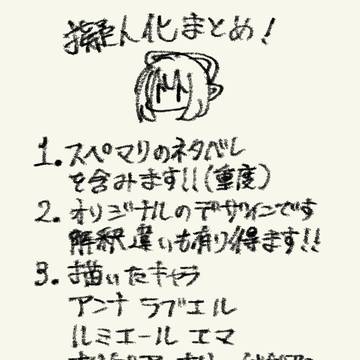 擬人化まとめ!
1.スペマリのネタバレ
を含みます!!(重度)
2.オリジナルのデザインです
解釈違いも有り得ます!!
3.描いたキャラ
アンナ ラブエル
ルミエール エマ